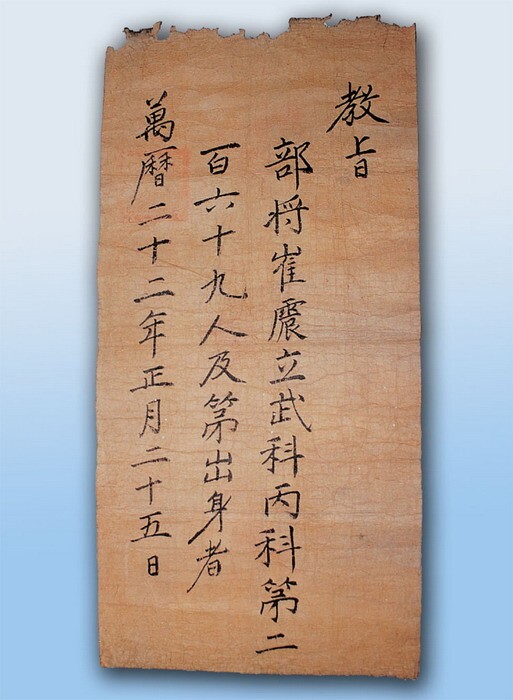 教旨
部将崔震立武科丙科第二
百六十九人及第出身者
萬曆二十二年正月二十五日